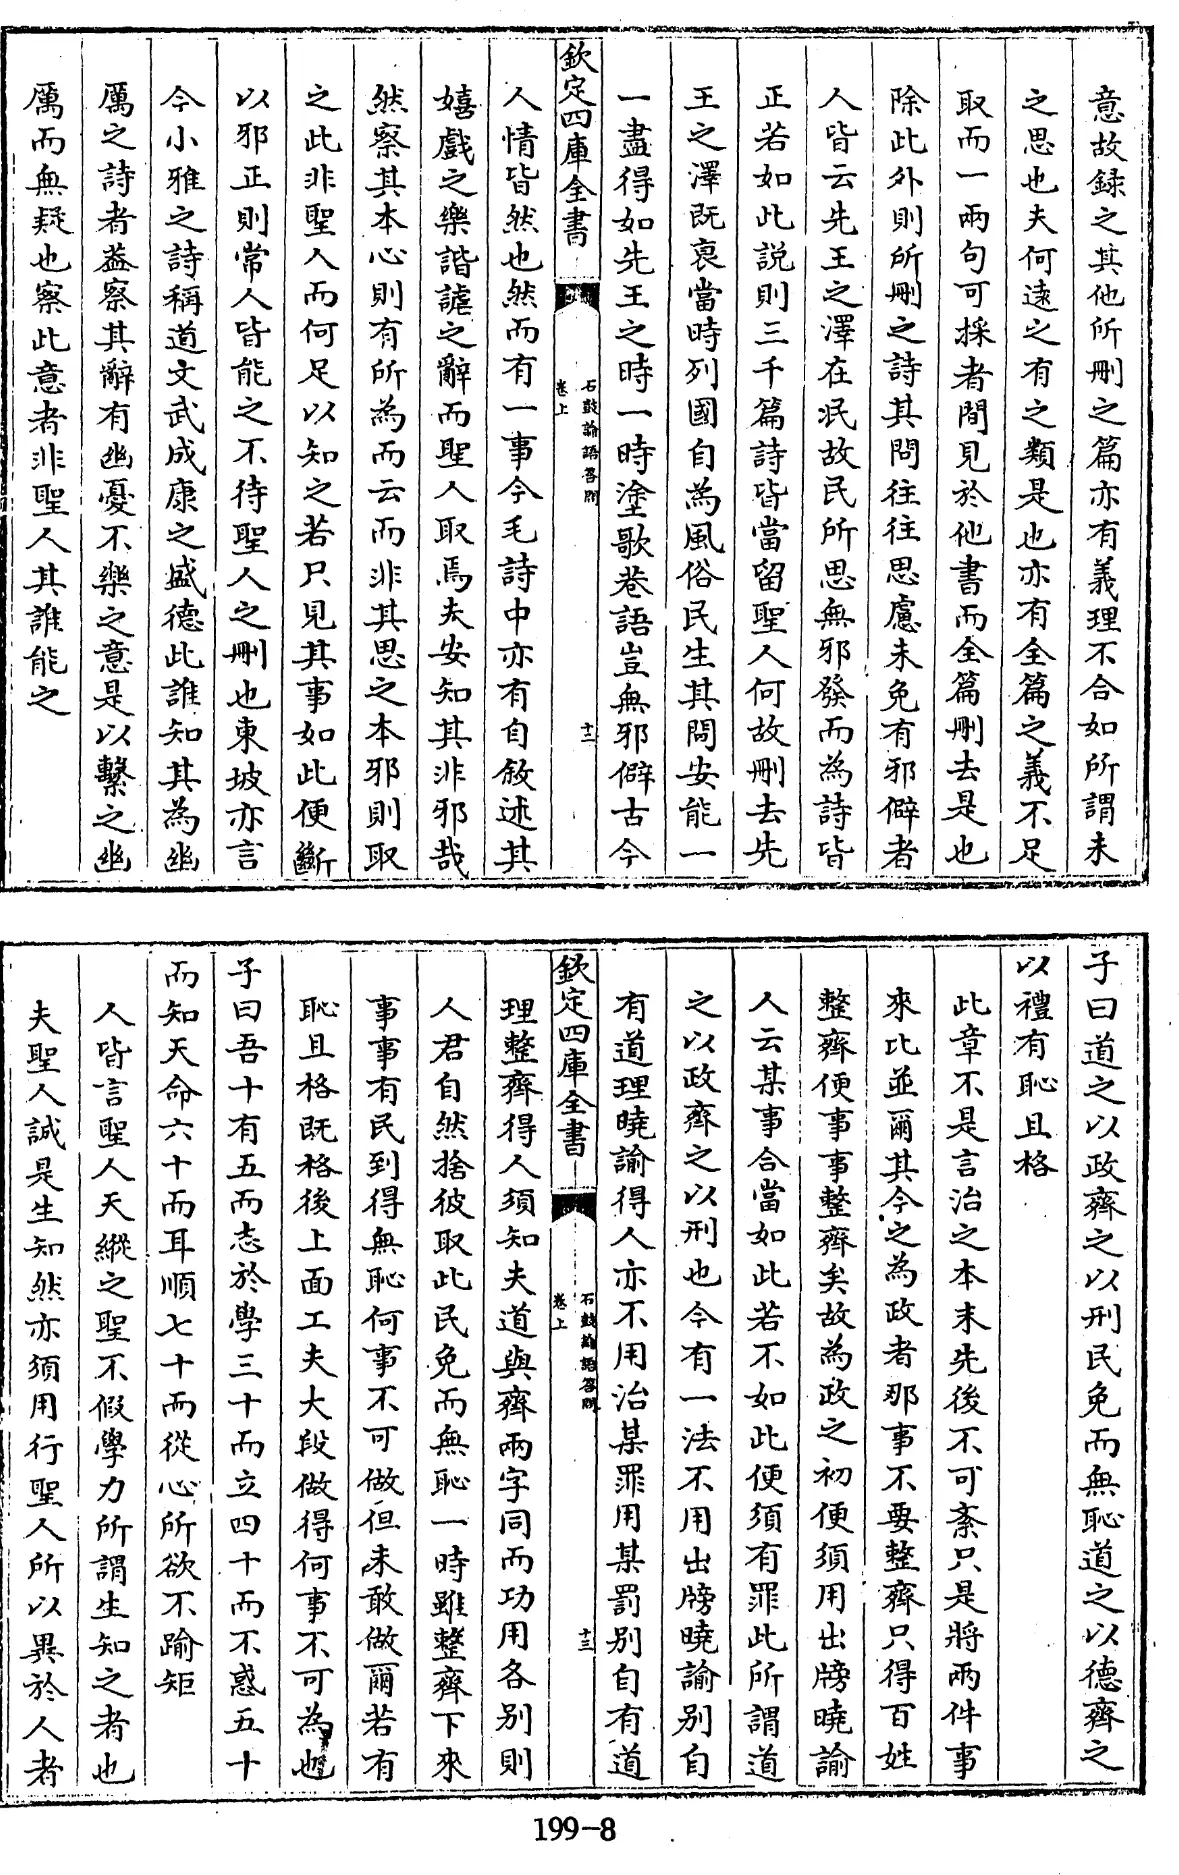 意故録之其他所刪之篇亦有義理不合如所謂未
之思也夫何遠之有之類是也亦有全篇之義不足
取而一兩句可採者間見於他書而全篇刪去是也
除此外則所刪之詩其間往往思慮未免有邪僻者
人皆云先王之澤在泯故民所思無邪發而為詩皆
正若如此説則三千篇詩皆當留聖人何故刪去先
王之澤既衰當時列國自為風俗民生其間安能一
一盡得如先王之時一時塗歌巷語豈無邪僻古今
欽定四庫全書
石鼓論語答問
卷上
十二
人情皆然也然而有一事今毛詩中亦有自敘述其
嬉戲之樂諧謔之辭而聖人取焉夫安知其非邪哉
然察其本心則有所為而云而非其思之本邪則取
之此非聖人而何足以知之若只見其事如此便斷
以邪正則常人皆能之不待聖人之刪也東坡亦言
今小雅之詩稱道文武成康之盛德此誰知其為幽
厲之詩者葢察其辭有幽憂不樂之意是以繫之幽
厲而無疑也察此意者非聖人其誰能之
子曰道之以政齊之以刑民免而無恥道之以德齊之
以禮有恥且格
此章不是言治之本末先後不可紊只是將兩件事
來比並爾其今之為政者那事不要整齊只得百姓
整齊便事事整齊矣故為政之初便須用出牓曉諭
人云某事合當如此若不如此便須有罪此所謂道
之以政齊之以刑也今有一法不用出牓曉諭別自
有道理曉諭得人亦不用治某罪用某罰別自有道
欽定四庫全書
石鼓論語答問
卷上
十三
理整齊得人須知夫道與齊兩字同而功用各別則
人君自然捨彼取此民免而無恥一時雖整齊下來
事事有民到得無恥何事不可做但未敢做爾若有
恥且格既格後上面工夫大段做得何事不可為也
子曰吾十有五而志於學三十而立四十而不惑五十
而知天命六十而耳順七十而從心所欲不踰矩
人皆言聖人天縱之聖不假學力所謂生知之者也
夫聖人誠是生知然亦須用行聖人所以異於人者
199-8